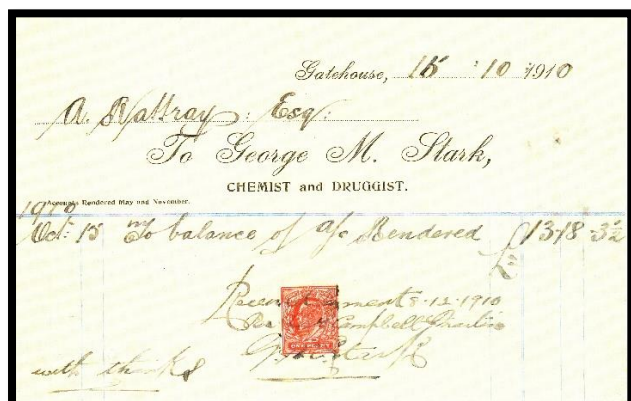 Gatehouse, 15 : 10 : 1910
A. Rattray : Esq :
To George M. Stark,
CHEMIST and DRUGGIST.
Accounts Rendered May and November.
1910
Oct: 15 To balance of a/c Rendered £13-18-3½
8-12-1910
Campbell
G. M. Stark
with thanks